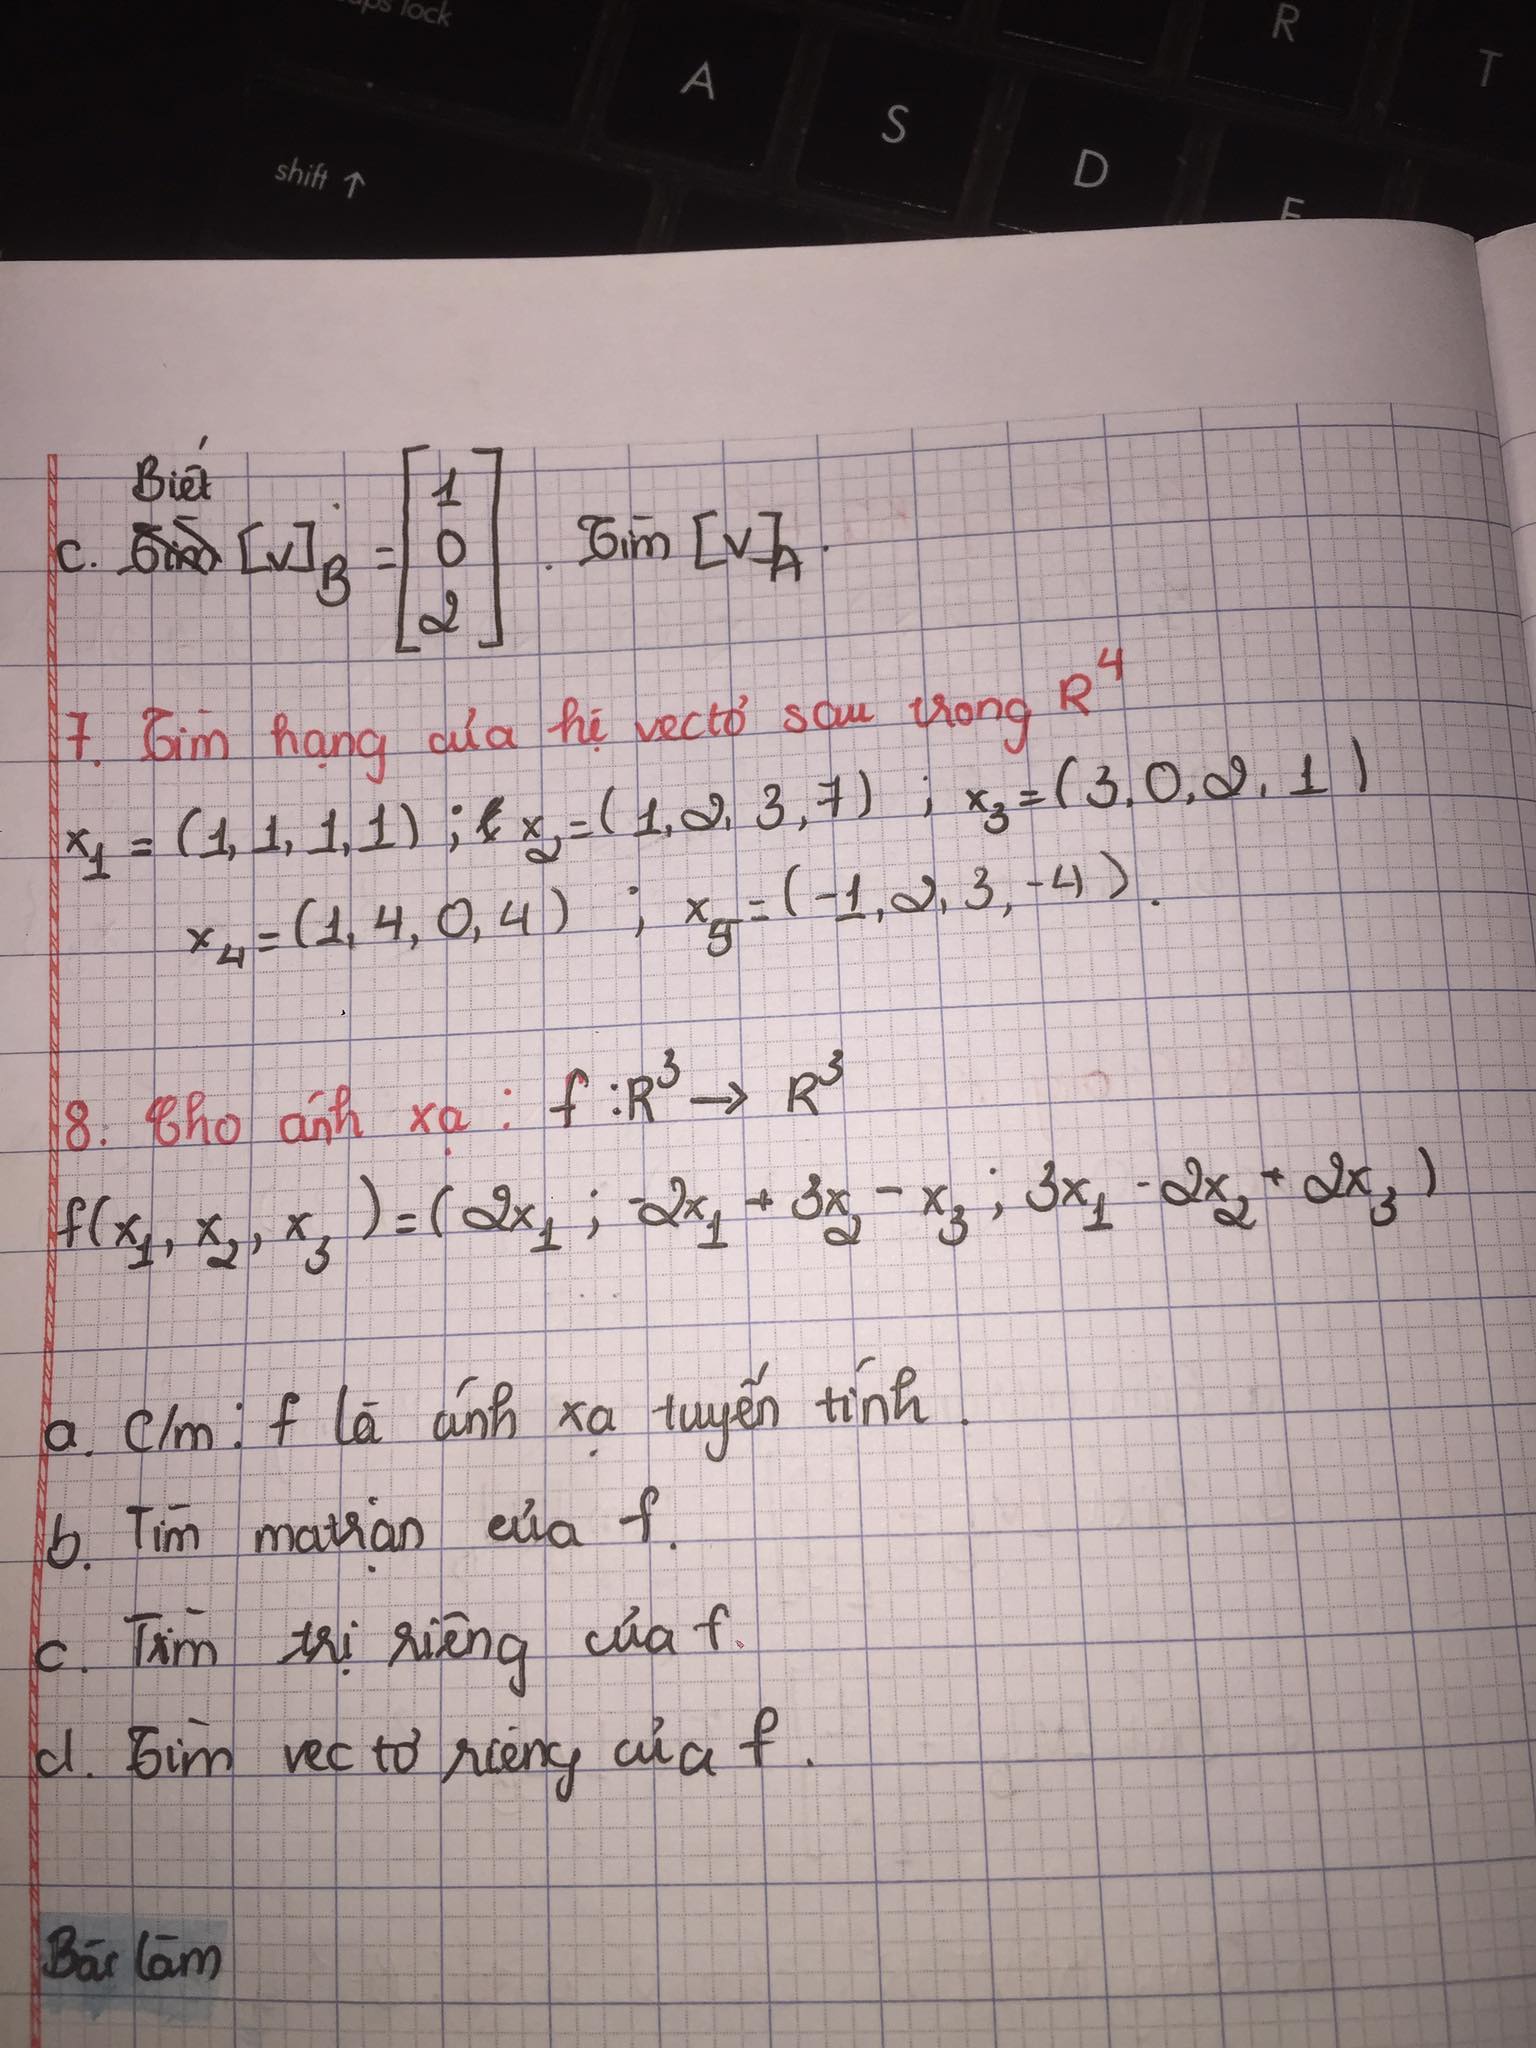 caps lock
A
S
D
F
R
T
shift ↑
Biết
c. Tìm [v]_B = [1 0 2] . Tìm [v]_A .
7. Tìm hạng của hệ vectơ sau trong R^4
x_1 = (1, 1, 1, 1) ; x_2 = (1, 2, 3, 7) ; x_3 = (3, 0, 2, 1)
x_4 = (1, 4, 0, 4) ; x_5 = (-1, 2, 3, -4) .
8. Cho ánh xạ : f : R^3 → R^3
f(x_1, x_2, x_3) = (2x_1 ; -2x_1 + 3x_2 - x_3 ; 3x_1 - 2x_2 + 2x_3)
a. C/m : f là ánh xạ tuyến tính .
b. Tìm matrận của f.
c. Tìm trị riêng của f.
d. Tìm vectơ riêng của f .
Bài làm